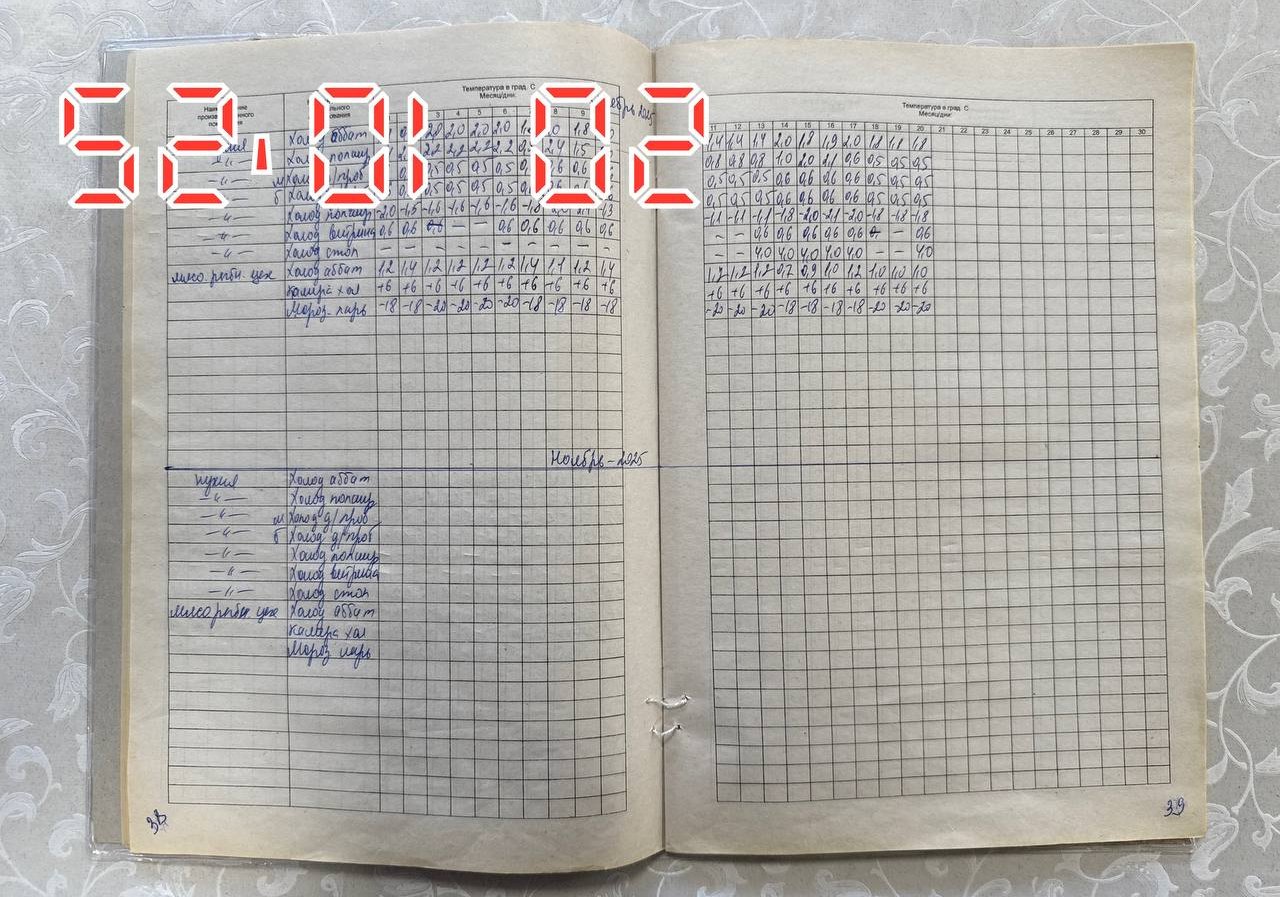 52:01 02
Температура в град. С
Месяц/дни:
3 4 5 6 8 9
Холод аббат 2,0 2,0 2,0 1,8
Холод попаир 2,2 2,2 2,2 2,2 2,4 1,5
Холод попаир -2,0 -1,5 -1,6 -1,6 -1,6 -1,6 -1,8
Холод витрина 0,6 0,6 0,6 — — 0,6 0,6 0,6 0,6 0,6
Холод стол — — — — — — — — — —
мясо.рыбн. цех Холод аббат 1,2 1,4 1,2 1,2 1,2 1,2 1,4 1,4 1,2 1,4
Камера хол +6 +6 +6 +6 +6 +6 +6 +6 +6 +6
Мороз. ларь -18 -18 -20 -20 -20 -20 -18 -18 -18 -18
Ноябрь - 2025
кухня Холод аббат
—"— Холод попаир
—"— м Холод д/проб
—"— б Холод д/проб
—"— Холод попаир
—"— Холод витрина
—"— Холод стол
мясо рыбн. цех Холод аббат
Камера хол
Мороз ларь
Температура в град. С
Месяц/дни:
11 12 13 14 15 16 17 18 19 20 21 22 23 24 25 26 27 28 29 30
1,4 1,4 1,4 2,0 1,8 1,9 2,0 1,8 1,8 1,8
0,8 0,8 0,8 1,0 2,0 2,1 0,6 0,5 0,5 0,5
0,5 0,5 0,5 0,6 0,6 0,6 0,6 0,5 0,5 0,5
0,5 0,5 0,5 0,6 0,6 0,6 0,6 0,5 0,5 0,5
-1,1 -1,1 -1,1 -1,8 -2,0 -2,1 -2,0 -1,8 -1,8 -1,8
— — 0,6 0,6 0,6 0,6 0,6 — 0,6
— — 4,0 4,0 4,0 4,0 4,0 — — 4,0
1,2 1,2 1,2 0,7 0,9 1,0 1,2 1,0 1,0 1,0
+6 +6 +6 +6 +6 +6 +6 +6 +6 +6
-20 -20 -20 -18 -18 -18 -18 -20 -20 -20
39